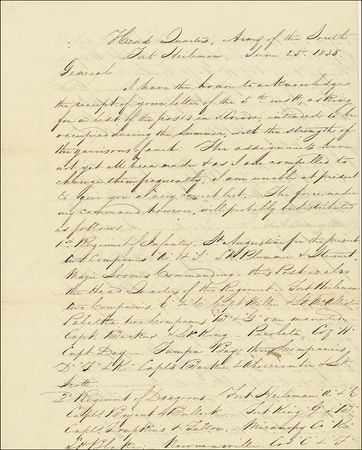 Head Quarters, Army of the South
Fort Heileman June 25th 1838.
General
I have the honor to acknowledge
the receipt of your letter of the 5th inst, asking
for a list of the posts in Florida, intended to be
occupied during the summer, with the strength of
the garrisons of each. The assignments have
not yet all been made & as I am compelled to
change them frequently, I am unable at present
to give you a very correct list. The force under
my command however, will probably be distributed
as follows.
1st Regiment of Infantry. St Augustine for the present
two Companies
Major Loomis Commanding. this Post is also
the Head Quarters of the Regiment. Fort Heileman
two Companies
Palatka two Companies one mounted
Capt. Barker Lt King Co. H
Capt Day — Tampa Bay three Companies
D. F & K. Capts Barker & Abercrombie & Lt
Scott.
2d Regiment of Dragoons. Fort Heileman A & E
Capts Bryant & Bullock. Fort King G &
Capts Tompkins & Fulton. Micanopy Co. K
Lt Blake. Newnansville Cos C & F